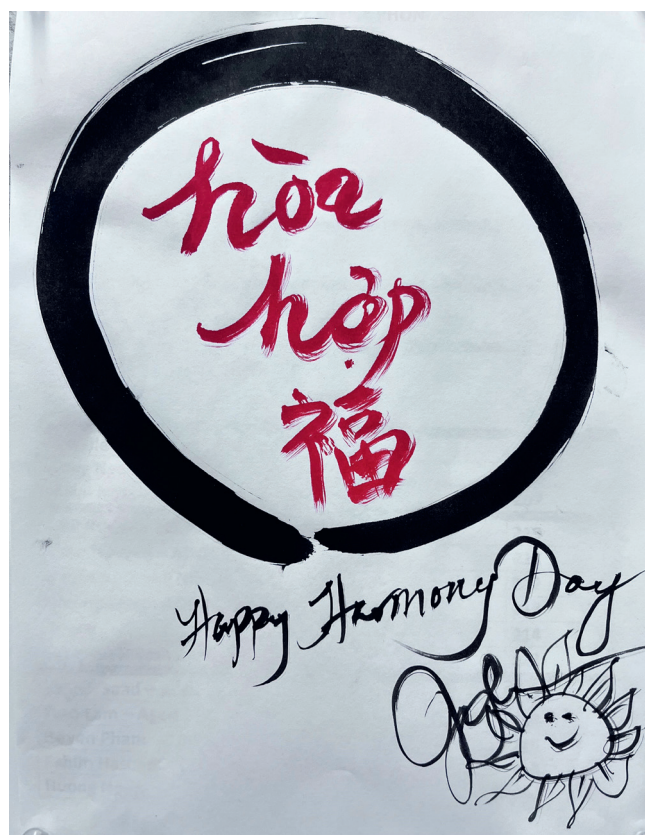 hòa
hợp
福
Happy Harmony Day